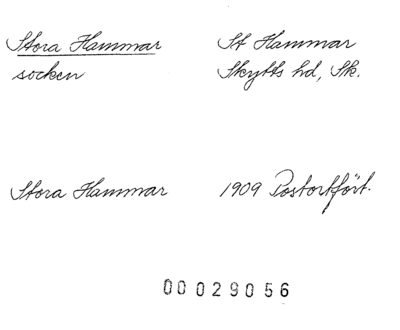 Stora Hammar St Hammar
socken Skytts hd, Sk.
Stora Hammar 1909 Postortsfört.
00029056